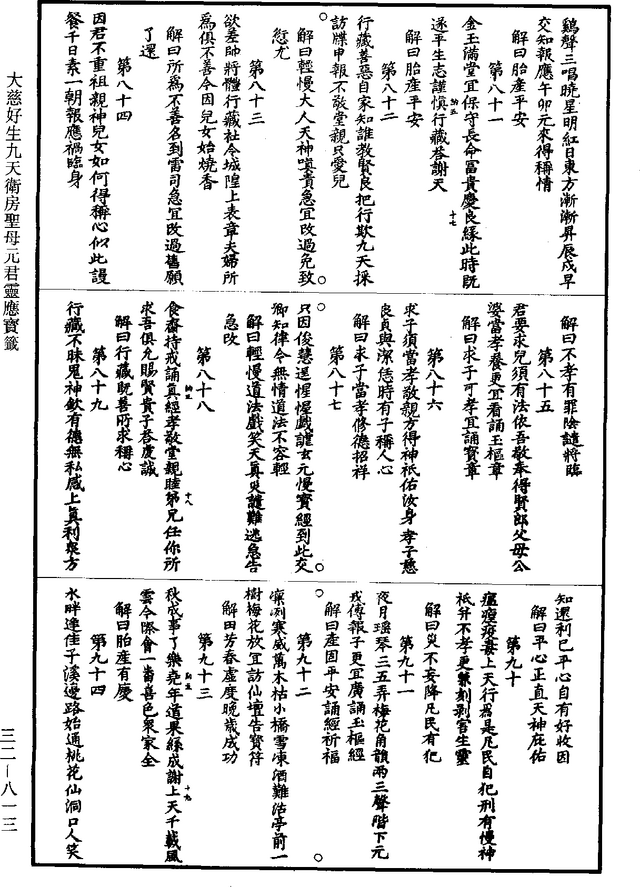 鷄聲三唱曉星明紅日東方漸漸昇辰戌早
交知報應午卯元來得稱情
解曰胎產平安
第八十一
金玉滿堂宜保守長命富貴慶良緣此時既
遂平生志謹慎行藏荅謝天
解曰胎產平安
第八十二
行藏善惡自家知誰敎賢良把行欺九天採
訪牒申報不敬堂親只愛兒
解曰輕慢大人天神嗔責急宜改過免致
愆尤
第八十三
欲差帥將體行藏社令城隍上表章夫婦所
爲俱不善今因兒女始燒香
解曰所爲不善名到雷司急宜改過舊願
了還
第八十四
因君不重祖親神兒女如何得稱心似此謾
餐千日素一朝報應禍臨身
解曰不孝有罪陰譴將臨
第八十五
君要求兒須有法依吾敬奉得賢郎父母公
婆當孝養更宜看誦玉樞章
解曰求子可孝宜誦寶章
第八十六
求子須當孝敬親方得神祇佑汝身孝子慈
良貞與潔恁時有子稱人心
解曰求子當孝修德招祥
第八十七
只因俊慧逞惺惺戲謔玄元慢寶經到此交
卿知律令無情道法不容輕
解曰輕慢道法戲笑天真災譴難逃急告
急改
第八十八
食齋持戒誦真經孝敬堂親睦弟兄任你所
求吾俱允賜賢貴子荅虔誠
解曰行藏既善所求稱心
第八十九
行藏不昧鬼神欽有德無私感上真利衆方
知還利己平心自有好收因
解曰平心正直天神庇佑
第九十
瘟𤺊疫毒上天行爲是凡民自犯刑有慢神
祇并不孝更兼剋剥害生靈
解曰災不妄降凡民有犯
第九十一
夜月瑤琴三五弄梅花角韻兩三聲階下元
戎傳報子更宜廣誦玉樞經
解曰產固平安誦經祈福
第九十二
凜冽寒威萬木枯小橋雪凍酒難沽亭前一
樹梅花放宜訪仙壇告寶符
解曰芳春虛度晚歲成功
第九十三
秋成事了樂堯年道果緣成謝上天千載風
雲今際會一畨喜色衆家全
解曰胎產有慶
第九十四
水畔逢佳子溪邊路始通桃花仙洞口人笑
大慈好生九天衛房聖母元君靈應寶籤
三二－八一三